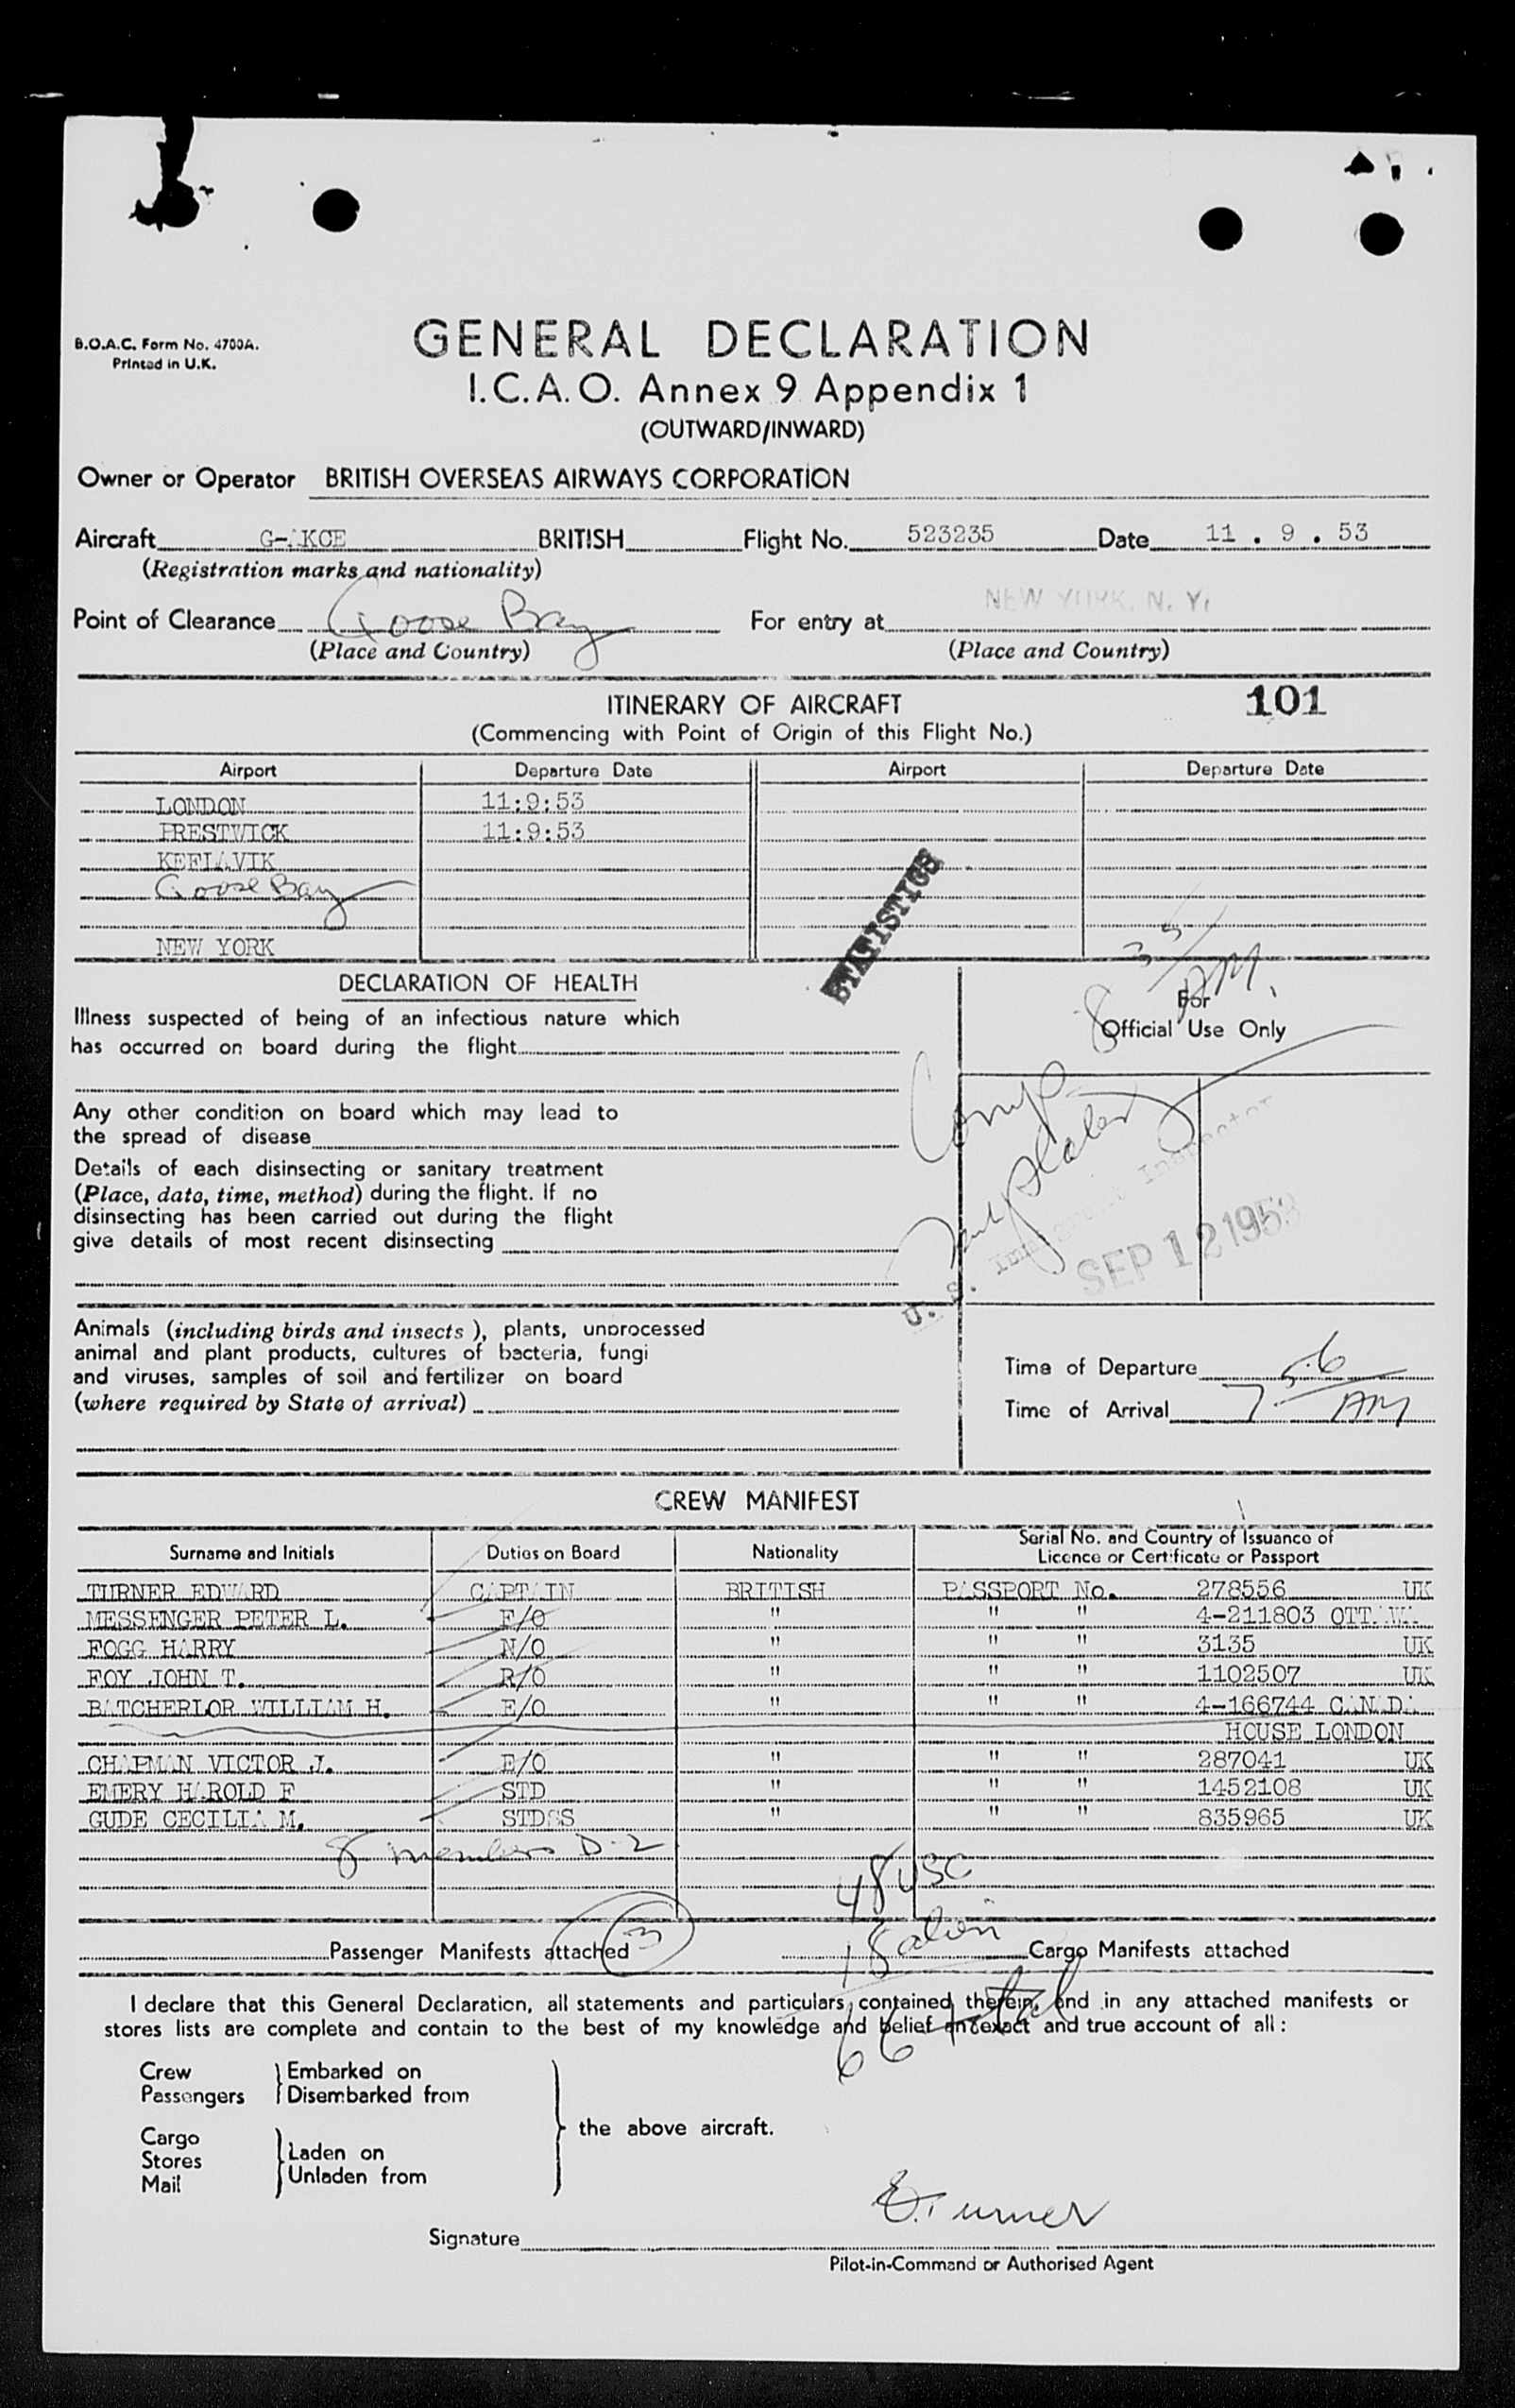 B.O.A.C. Form No. 4700A.
Printed in U.K.
GENERAL DECLARATION
I.C.A.O. Annex 9 Appendix 1
(OUTWARD/INWARD)
Owner or Operator BRITISH OVERSEAS AIRWAYS CORPORATION
Aircraft G-AKCE BRITISH Flight No. 523235 Date 11 . 9 . 53
(Registration marks and nationality)
Point of Clearance Goose Bay For entry at NEW YORK, N. Y.
(Place and Country) (Place and Country)
ITINERARY OF AIRCRAFT 101
(Commencing with Point of Origin of this Flight No.)
Airport Departure Date Airport Departure Date
LONDON 11:9:53
PRESTWICK 11:9:53
KEFLAVIK
Goose Bay
NEW YORK
STATISTICS
DECLARATION OF HEALTH
8 35/AM.
For
Official Use Only
Illness suspected of being of an infectious nature which
has occurred on board during the flight
Any other condition on board which may lead to
the spread of disease
Details of each disinsecting or sanitary treatment
(Place, date, time, method) during the flight. If no
disinsecting has been carried out during the flight
give details of most recent disinsecting
Comp
U. S. Immigrant Inspector
SEP 12 1953
Animals (including birds and insects), plants, unprocessed
animal and plant products, cultures of bacteria, fungi
and viruses, samples of soil and fertilizer on board
(where required by State of arrival)
Time of Departure
Time of Arrival 7.56 AM
CREW MANIFEST
Surname and Initials Duties on Board Nationality Serial No. and Country of Issuance of
Licence or Certificate or Passport
TURNER EDWARD CAPTAIN BRITISH PASSPORT No. 278556 UK
MESSENGER PETER L. F/O " " " 4-211803 OTTAWA
FOGG HARRY N/O " " " 3135 UK
FOY JOHN T. R/O " " " 1102507 UK
BATCHERLOR WILLIAM H. E/O " " " 4-166744 CANADA
HOUSE LONDON
CHAPMAN VICTOR J. E/O " " " 287041 UK
EMERY HAROLD F STD " " " 1452108 UK
GUDE CECILIA M. STDSS " " " 835965 UK
8 members D-2
48 USC
18 alien
66 total
Passenger Manifests attached 3 Cargo Manifests attached
I declare that this General Declaration, all statements and particulars contained therein, and in any attached manifests or
stores lists are complete and contain to the best of my knowledge and belief an exact and true account of all :
Crew
Passengers
Embarked on
Disembarked from
Cargo
Stores
Mail
Laden on
Unladen from
the above aircraft.
E. Turner
Signature
Pilot-in-Command or Authorised Agent